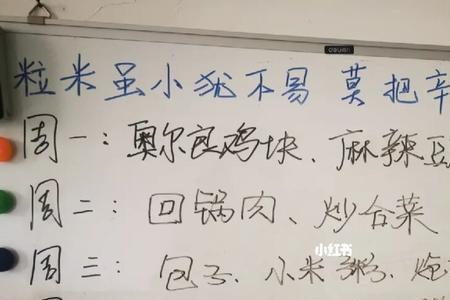 deli
粒米虽小犹不易 莫把辛
周一：奥尔良鸡块、麻辣豆
周二：回锅肉、炒合菜
小红书
周三：包子、小米粥、